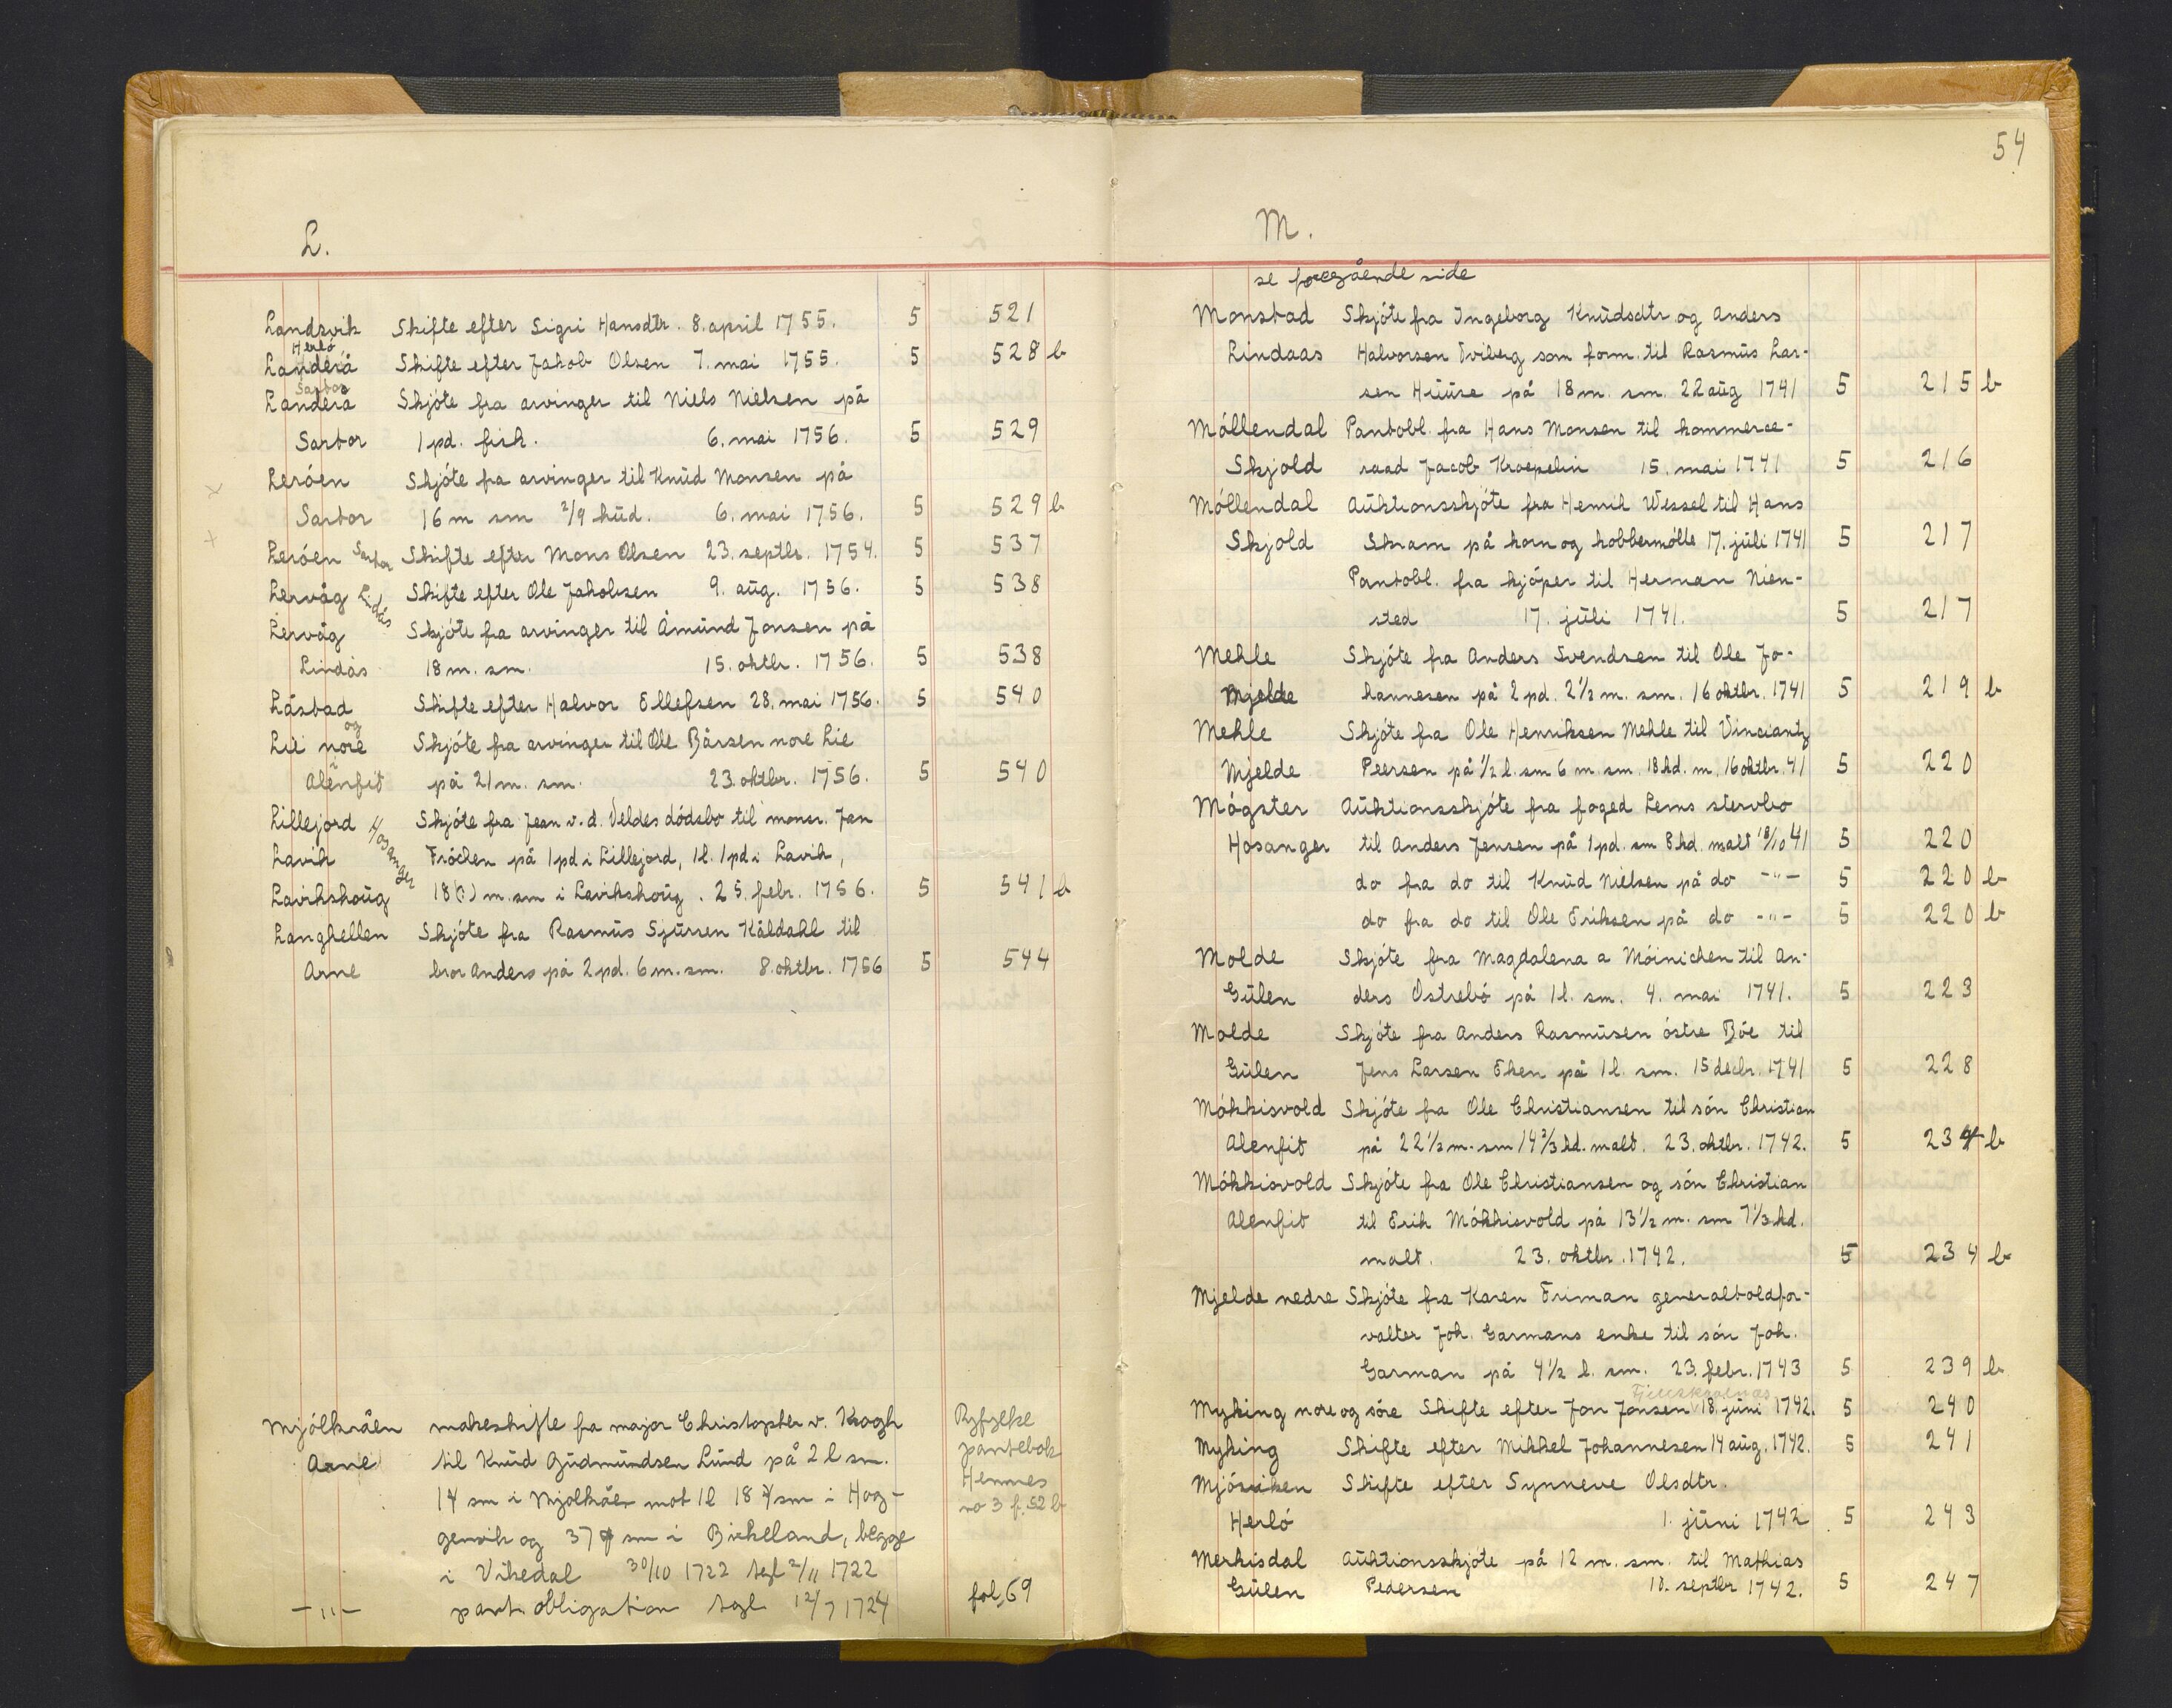 L.
Landsvik Skifte efter Sigri Hansdtr. 8. april 1755. 5 521
Herlö
Landerå Skifte efter Jakob Olsen 7. mai 1755. 5 528 b
Sartor
Landerå Skjöte fra arvinger til Niels Nielsen på
Sartor 1 pd. fisk. 6. mai 1756. 5 529
x Leröen Skjöte fra arvinger til Knud Monsen på
Sartor 16 m sm 2/9 hud. 6. mai 1756. 5 529 b
+ Leröen Sartor Skifte efter Mons Olsen 23. septbr. 1754. 5 537
Lervåg Lindås Skifte efter Ole Jakobsen 9. aug. 1756. 5 538
Lervåg Skjöte fra arvinger til Åmund Jonsen på
Lindås 18 m. sm. 15. oktbr. 1756. 5 538
Låstad Skifte efter Halvor Ellefsen 28. mai 1756. 5 540
og
Lie nore Skjöte fra arvinger til Ole Bårsen nore Lie
i
Alenfit på 21 m. sm. 23. oktbr. 1756. 5 540
Lillejord Hosanger Skjöte fra Jean v. d. Veldes dödsbo til monsr. Jan
Lavik Fröchen på 1 pd i Lillejord, 1 l. 1 pd i Lavik,
Lavikshoug 18 (?) m. sm i Lavikshoug. 25. febr. 1756. 5 541 b
Langhellen Skjöte fra Rasmus Sjursen Kåldahl til
Arne bror Anders på 2 pd. 6 m. sm. 8. oktbr. 1756 5 544
Mjölkråen makeskifte fra major Christopher v. Krogh Ryfylke
Arne til Knud Gudmundsen Lund på 2 l sm. pantebok
14 sm i Mjolkråen mot 1 l 18 ¥ sm i Hog- Hennes
gensvik og 37 sm i Birkeland, begge no 3 f. 52 b
i Vikedal 30/10 1722 tgl 2/11 1722
-"- pant obligation tgl. 12/7 1724 fol. 69
54
M.
se foregående side
Monstad Skjöte fra Ingeborg Knudsdtr og Anders
Lindaas Halvorsen Tviberg som form. til Rasmus Lar-
sen Huuse på 18 m. sm. 22 aug 1741 5 215 b
Möllendal Pantobl. fra Hans Monsen til kommerce-
Skjold raad Jacob Kroepelin 15. mai 1741 5 216
Möllendal Auktionsskjöte fra Henrik Wessel til Hans
Skjold Skram på korn og kobbermölle 17. juli 1741 5 217
Pantobl. fra kjöper til Herman Nien-
sted 17. juli 1741. 5 217
Mehle Skjöte fra Anders Svendsen til Ole Jo-
Mjelde hannesen på 2 pd. 2 1/2 m. sm. 16 oktbr. 1741 5 219 b
Mehle Skjöte fra Ole Henriksen Mehle til Vinciantz
Mjelde Peersen på 1/2 l. sm 6 m sm. 18 kd. m. 16 oktbr. 41 5 220
Mögster Auktionsskjöte fra foged Lems stervbo
Hosanger til Anders Jensen på 1 pd. sm 8 kd. malt 18/10 41 5 220
do fra do til Knud Nielsen på do -"- 5 220 b
do fra do til Ole Eriksen på do -"- 5 220 b
Molde Skjöte fra Magdalena a Möinichen til An-
Gulen ders Ostrebö på 1 l. sm. 4. mai 1741. 5 223
Molde Skjöte fra Anders Rasmusen östre Böe til
Gulen Jens Larsen Eken på 1 l. sm. 15 decbr. 1741 5 228
Mökkisvold Skjöte fra Ole Christiansen til sön Christian
Alenfit på 22 1/2 m. sm 14 2/3 kd. malt. 23. oktbr. 1742. 5 234 b
Mökkisvold Skjöte fra Ole Christiansen og sön Christian
Alenfit til Erik Mökkisvold på 13 1/2 m. sm 7 1/3 kd.
malt. 23. oktbr. 1742. 5 234 b
Mjelde nedre Skjöte fra Karen Friman generaltoldfor-
valter Joh. Garmans enke til sön Joh.
Garman på 4 1/2 l. sm. 23. febr. 1743 5 239 b
Myking nore og söre Skifte efter Jon Jonsen 18. juni 1742. 5 240
Myking Skifte efter Mikkel Johannesen 14 aug. 1742. 5 241
Mjösviken Skifte efter Synneve Olsdtr.
Herlö 1. juni 1742. 5 243
Merkisdal Auktionsskjöte på 12 m. sm. til Mathias
Gulen Pedersen 10. septbr 1742. 5 247